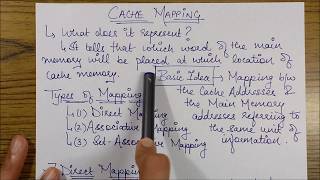 CACHE MAPPING
↳ What does it represent?
↳ It tells that which word of the main
memory will be placed at which location of
cache memory.
Basic Idea → Mapping b/w
the Cache Addresses &
the Main Memory
addresses referring to
the same unit of
information.
Types of Mapping
↳ (1) Direct Mapping
↳ (2) Associative Mapping
↳ (3) Set-Associative Mapping
Direct Mapping